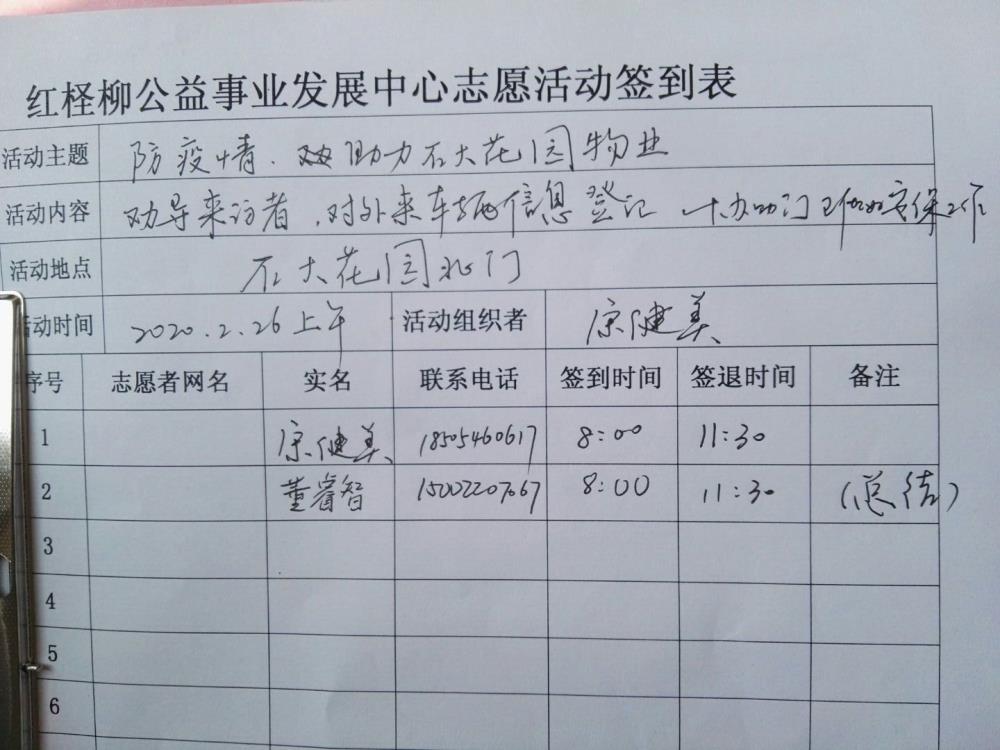 红柽柳公益事业发展中心志愿活动签到表
活动主题 防疫情. 助力石大花园物业
活动内容 劝导来访者,对外来车辆信息登记 协助门 安保工作
活动地点 石大花园北门
活动时间 2020.2.26上午 活动组织者 康健美
序号 志愿者网名 实名 联系电话 签到时间 签退时间 备注
1 康健美 18505460617 8:00 11:30
2 董睿智 8:00 11:30 (总结)
3
4
5
6